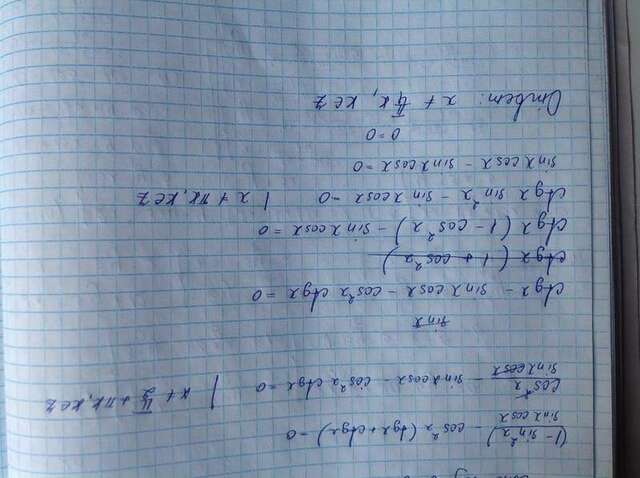 (1 - sin²x) / sinx cosx - cos²x (tgx + ctgx) = 0
cos²x / sinx cosx - sinx cosx - cos²x ctgx = 0 | x ≠ π/2 + πk, k∈Z
sinx
ctgx - sinx cosx - cos²x ctgx = 0
ctgx (1 + cos²x)
ctgx (1 - cos²x) - sinx cosx = 0
ctgx sin²x - sinx cosx = 0 | x ≠ πk, k∈Z
sinx cosx - sinx cosx = 0
0 = 0
Ответ: x ≠ π/4 k, k∈Z